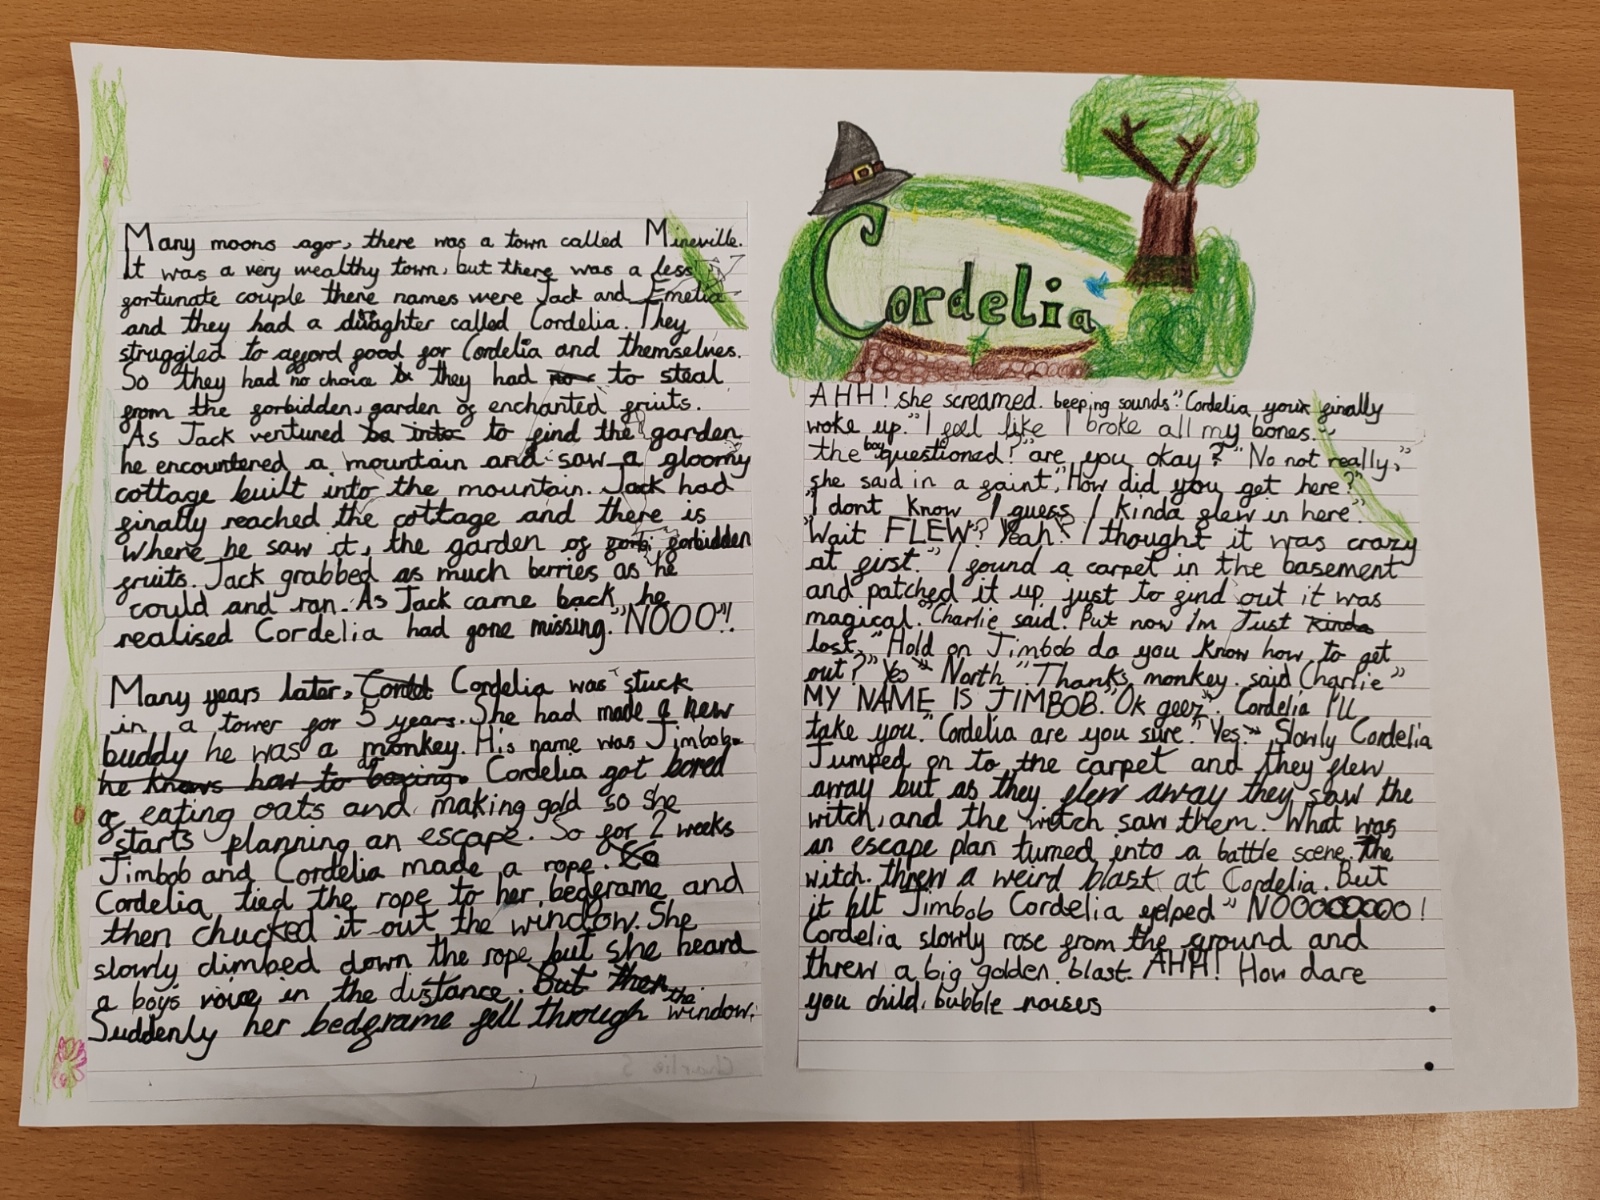 Many moons ago, there was a town called Mineville.
It was a very wealthy town, but there was a less
fortunate couple there names were Jack and Emelia
and they had a daughter called Cordelia. They
struggled to afford food for Cordelia and themselves.
So they had no choice they had to steal
from the forbidden, garden of enchanted fruits.
As Jack ventured to find the garden
he encountered a mountain and saw a gloomy
cottage built into the mountain. Jack had
finally reached the cottage and there is
where he saw it, the garden of forbidden
fruits. Jack grabbed as much berries as he
could and ran. As Jack came back, he
realised Cordelia had gone missing. "NOOO"!.
Many years later, Cordelia was stuck
in a tower for 5 years. She had made a new
buddy he was a monkey. His name was Jimbob.
he knows how to boxing. Cordelia got bored
of eating oats and making gold so she
starts planning an escape. So for 2 weeks
Jimbob and Cordelia made a rope.
Cordelia tied the rope to her bedframe and
then chucked it out the window. She
slowly climbed down the rope but she heard
a boys voice in the distance. But then
Suddenly her bedframe fell through the window.
Charlie S
Cordelia
AHH! she screamed. beeping sounds" Cordelia your finally
woke up." I feel like I broke all my bones."
the boy questioned?" are you okay?" "No not really,"
she said in a faint, "How did you get here?"
"I dont know I guess I kinda flew in here."
"Wait FLEW? Yeah. I thought it was crazy
at first." I found a carpet in the basement
and patched it up just to find out it was
magical." Charlie said. But now I'm Just kinda
lost." "Hold on Jimbob do you know how to get
out?" Yes" North" "Thanks, monkey. said Charlie"
MY NAME IS JIMBOB." Ok geez". Cordelia I'll
take you." Cordelia are you sure." Yes." Slowly Cordelia
Jumped on to the carpet and they flew
array but as they flew away they saw the
witch, and the witch saw them. What was
an escape plan turned into a battle scene. The
witch. threw a weird blast at Cordelia. But
it hit Jimbob Cordelia yelped" NOOOOOOOO!
Cordelia slowly rose from the ground and
threw a big golden blast. AHH! How dare
you child. bubble noises